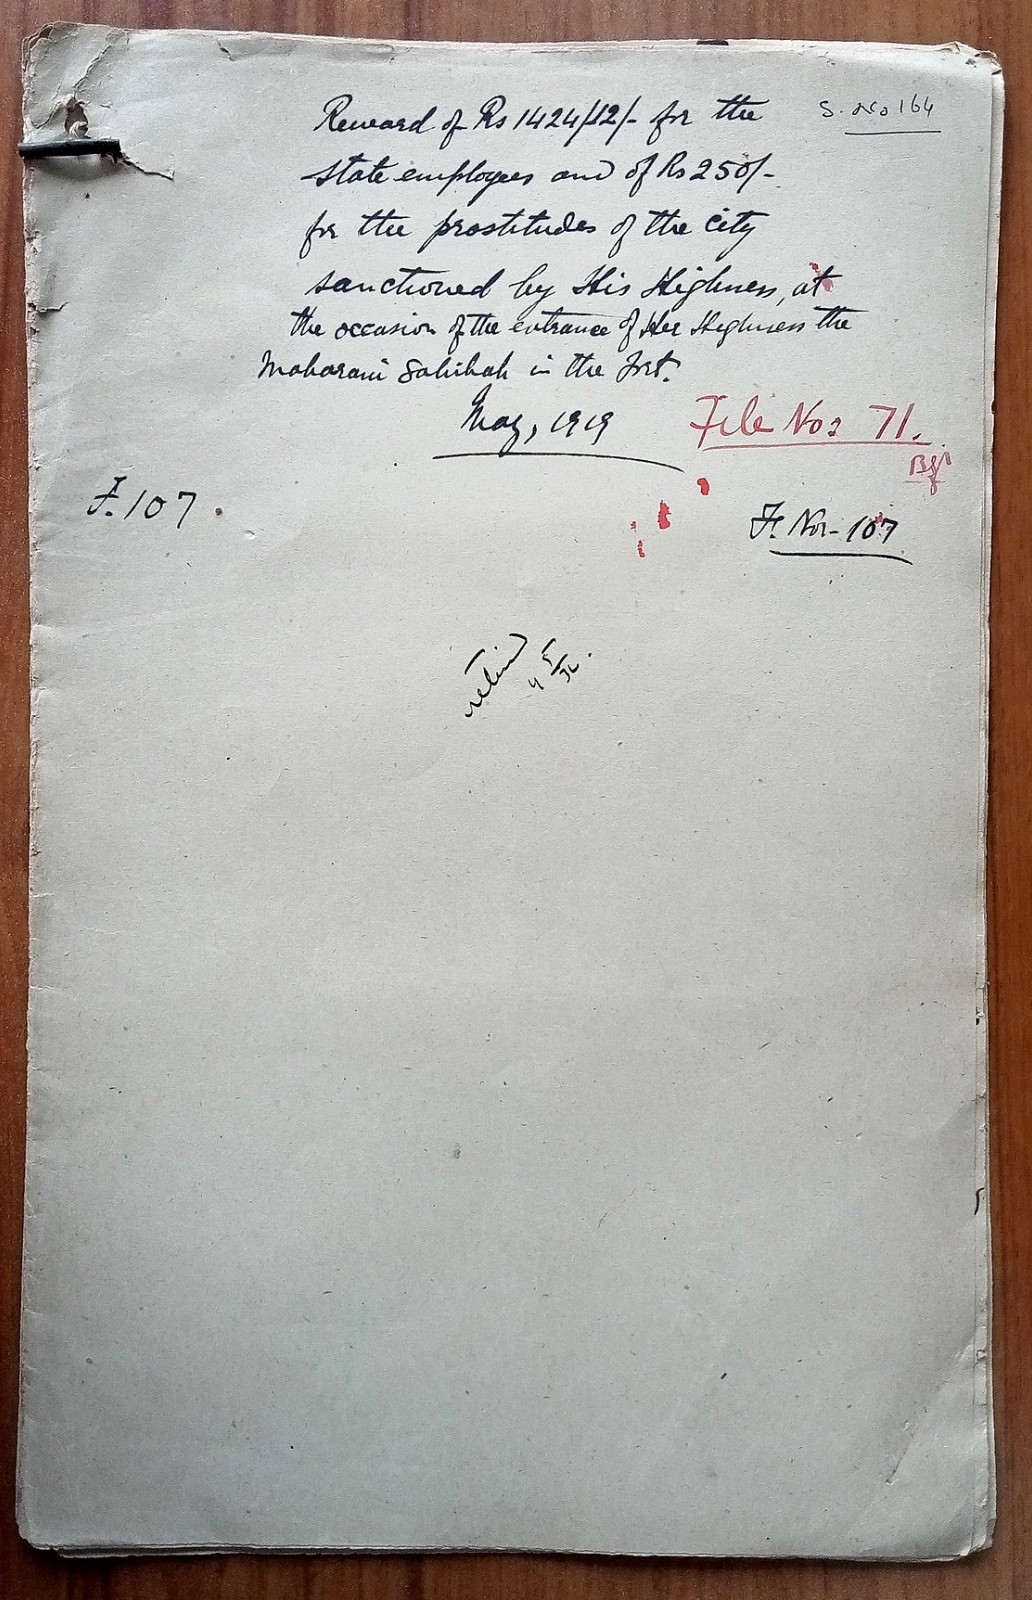 S. No 164
Reward of Rs 1424/12/- for the
state employees and of Rs 250/-
for the prostitudes of the city
sanctioned by His Highness, at
the occasion of the entrance of Her Highness the
Maharani Sahibah in the Fort.
May, 1919
File Nos 71.
F. 107.
F. No.- 107